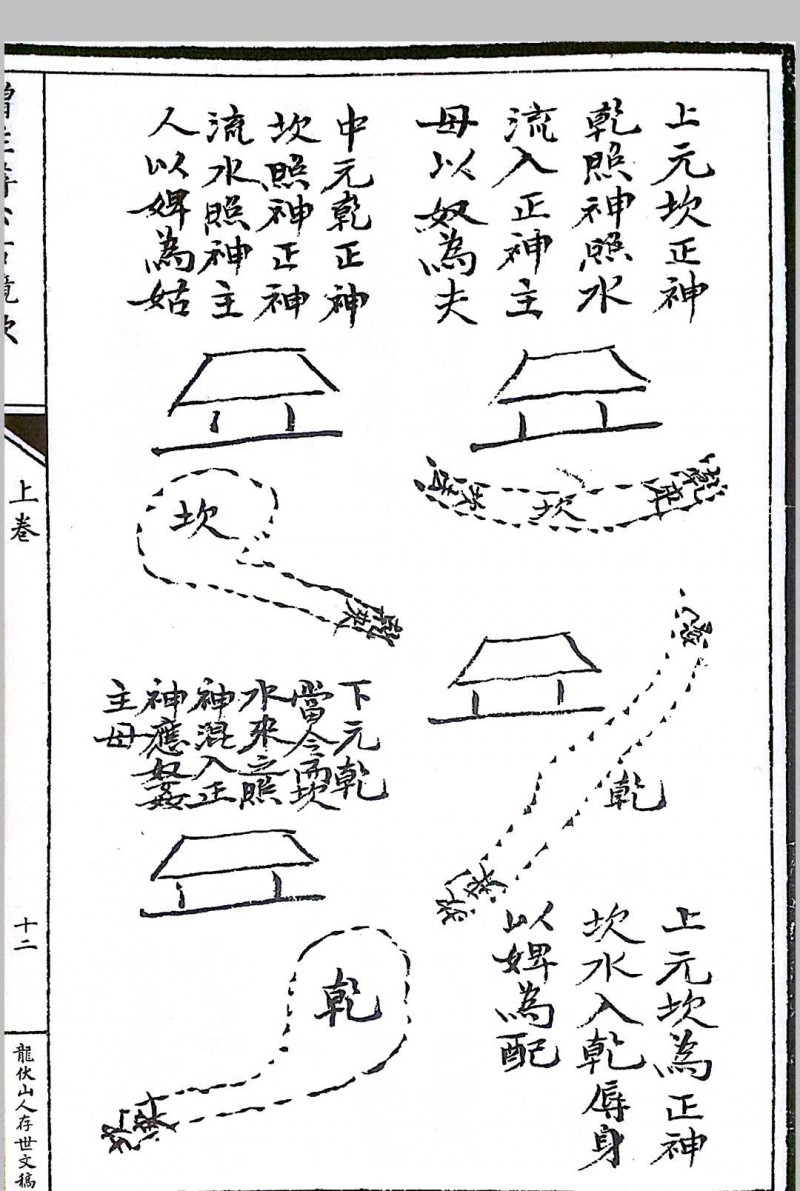 上元坎正神
乾照神照水
流入正神主
母以奴為夫
乾來
坎
中元乾正神
坎照神正神
流水照神主
人以婢為姑
坎
乾來
乾
上元坎為正神
坎水入乾辱身
以婢為配
下元乾
當令而坎
水來之照
神混入正
神應奴姦
主母
乾
上卷
十二
龍伏山人存世文稿